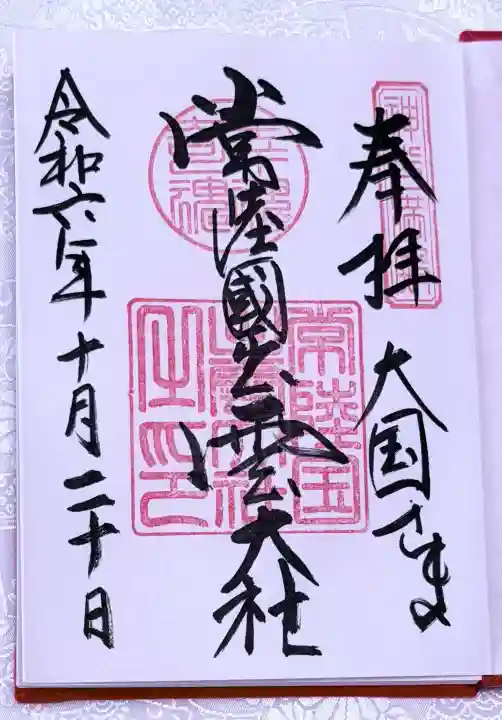 奉拝
大国さま
常陸國出雲大社
常陸国
出雲大社
之印
令和六年十月二十日